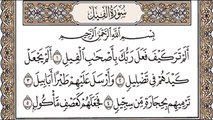 سُورَةُ الْفِيلِ
بِسْمِ اللَّهِ الرَّحْمَٰنِ الرَّحِيمِ
أَلَمْ تَرَ كَيْفَ فَعَلَ رَبُّكَ بِأَصْحَٰبِ الْفِيلِ ١ أَلَمْ يَجْعَلْ
كَيْدَهُمْ فِي تَضْلِيلٍ ٢ وَأَرْسَلَ عَلَيْهِمْ طَيْرًا أَبَابِيلَ ٣
تَرْمِيهِم بِحِجَارَةٍ مِّن سِجِّيلٍ ٤ فَجَعَلَهُمْ كَعَصْفٍ مَّأْكُولٍ ٥